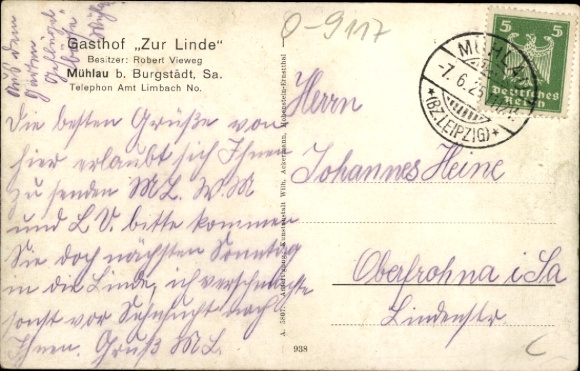 O-9117
Gasthof „Zur Linde"
Besitzer: Robert Vieweg
Mühlau b. Burgstädt, Sa.
Telephon Amt Limbach No.
Aus dem
Garten
Die besten Grüße von
hier erlaubt sich Ihnen
zu senden ML. W.M
und L V. bitte kommen
Sie doch nächsten Sonntag
in die Linde, ich verschmachte
sonst vor Sehnsucht nach
Ihnen. Gruß ML.
A. 5807. Kunstanstalt Wilh. Ackermann, Hohenstein-Ernstthal
938
5 5
Deutsches
Reich
MÜHLAU
-7.6.25
*(BZ.LEIPZIG)*
Herrn
Johannes Heine
Oberfrohna i Sa
Lindenstr